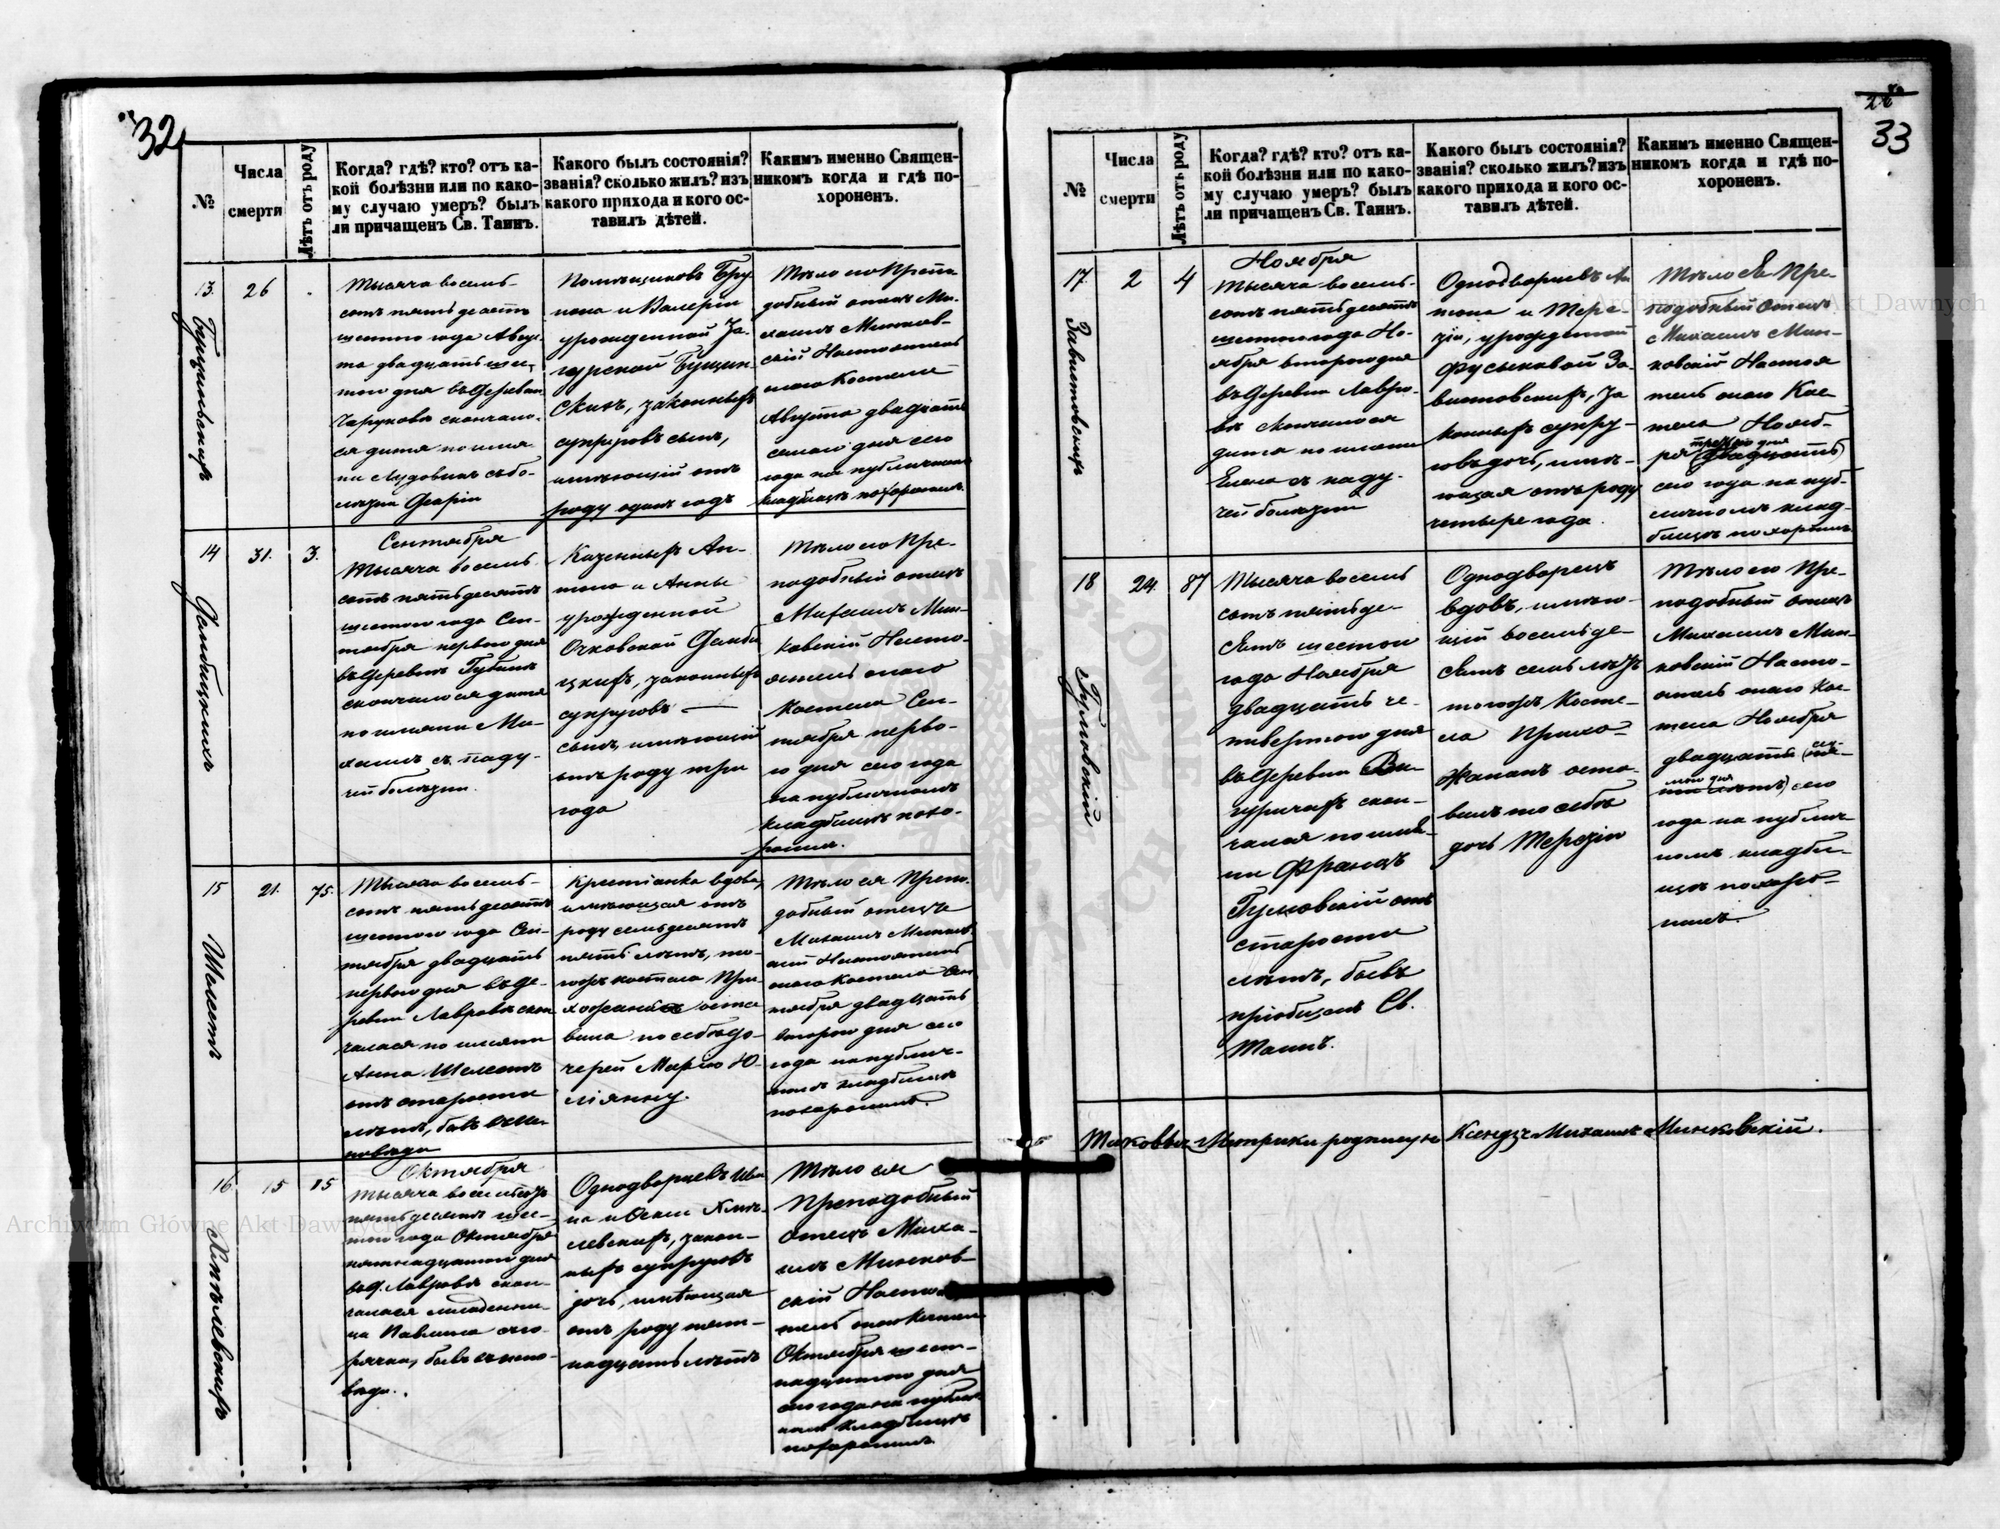 32
№
Числа
смерти
Лѣтъ отъ роду
Когда? гдѣ? кто? отъ ка-
кой болѣзни или по како-
му случаю умеръ? былъ
ли причащенъ Св. Таинъ.
Какого былъ состоянія?
званія? сколько жилъ? изъ
какого прихода и кого ос-
тавилъ дѣтей.
Какимъ именно Священ-
никомъ когда и гдѣ по-
хороненъ.
13.
26
Тысяча восемь-
сотъ пятьдесятъ
шестого года Авгус-
та двадцать шес-
того дня въ деревни
Чаруковъ скончало-
ся дитя по имя-
ни Людовикъ съ бо-
лѣзни
Помѣщиковъ
и Валеріи
урожденной За-
гурской
скихъ, законныхъ
супруговъ сынъ,
имѣющій отъ
роду одинъ годъ
Тѣло его Препо
добный отецъ Ми-
хаилъ Минков-
скій Настоятель
оного Костела
Августа двадцать
седьмого дня сего
года на публичномъ
кладбищѣ похоронилъ.
14
31.
3.
Сентября
Тысяча восемь
сотъ пятьдесятъ
шестого года Сен-
тября первого дня
въ деревни Губинъ
скончалося дитя
по имяни Ми-
хаилъ съ паду-
чей болѣзни.
Казенныхъ Ан-
тона и Анны
урожденной
Очковской Дамби
цкихъ, законныхъ
супруговъ —
сынъ, имѣющій
отъ роду три
года
Дамбицкихъ
Тѣло его Пре-
подобный отецъ
Михаилъ Мин-
ковскій Насто-
ятель оного
Костела Сен-
тября перво-
го дня сего года
на публичномъ
кладбищѣ похо-
ронилъ.
15
21.
75.
Шелестъ
Тысяча восемь-
сотъ пятьдесятъ
шестого года Сен-
тября двадцать
первого дня въ де-
ревни Лавровъ скон
чалася по имяни
Анна Шелестъ
отъ старости
лѣтъ, бывъ
Крестіянка вдова,
имѣющая отъ
роду семьдесятъ
пять лѣтъ, то-
гожъ костела При-
хожанка оста
вила по себѣ до-
черей Марію Ю-
ліянну.
Тѣло ея Препо-
добный отецъ
Михаилъ Минков-
скій Настоятель
оного Костела Сен-
тября двадцать
второго дня сего
года на публич-
номъ кладбищѣ
похоронилъ.
16
15
15
Хмѣлевскихъ
Октября
Тысяча восемьсотъ
пятьдесятъ шес-
того года Октября
пятнадцатого дня
въ д. Лавровъ скон-
чалася младенни-
ца Павлина съ го-
рячки, бывъ
Однодворцевъ Ива
на и Хмѣ-
левскихъ, закон-
ныхъ супруговъ
дочь, имѣющая
отъ роду пят-
надцать лѣтъ
Тѣло ея
Преподобный
отецъ Миха-
илъ Минков-
скій Настоя-
тель оного Костела
Октября шест-
надцатого дня
сего года на публич-
номъ кладбищѣ
похоронилъ.
33
№
Числа
смерти
Лѣтъ отъ роду
Когда? гдѣ? кто? отъ ка-
кой болѣзни или по како-
му случаю умеръ? былъ
ли причащенъ Св. Таинъ.
Какого былъ состоянія?
званія? сколько жилъ? изъ
какого прихода и кого ос-
тавилъ дѣтей.
Какимъ именно Священ-
никомъ когда и гдѣ по-
хороненъ.
17.
2
4
Завитовскихъ
Ноября
Тысяча восемь-
сотъ пятьдесятъ
шестого года Но-
ября второго дня
въ деревни Лавро-
въ скончалося
дитя по имяни
Елена съ паду-
чей болѣзни
Однодворцевъ Ан
тона и Тере-
зіи, урожденной
За-
витовскихъ, за
конныхъ супру-
говъ дочь, имѣ-
ющая отъ роду
четыре года.
Тѣло Ея Пре-
подобный Отецъ
Михаилъ Мин-
ковскій Настоя
тель оного Кос-
тела Нояб-
ря третьего дня (двадцать)
сего года на пуб-
личномъ клад-
бищѣ похоронилъ
18
24.
87
Гулковскій
Тысяча восемь
сотъ пятьде-
сятъ шестого
года Ноября
двадцать че-
твертого дня
въ деревни
скон-
чался по имя-
ни Францъ
Гулковскій отъ
старости
лѣтъ, бывъ
пріобщенъ Св.
Таинъ.
Однодворецъ
вдовъ, имѣю-
щій восемьде-
сятъ семь лѣтъ
тогожъ Косте-
ла Прихо-
жанинъ оста-
вилъ по себѣ
дочь Терезію
Тѣло его Пре-
подобный Отецъ
Михаилъ Мин-
ковскій Насто-
ятель оного Кос-
тела Ноября
двадцать сед-
мого дня сего
года на публич-
номъ кладби-
щѣ похоро-
нилъ.
Таковыя Метрики подписую Ксендзъ Михаилъ Минковскій.
Archiwum Główne Akt Dawnych
Archiwum Główne Akt Dawnych